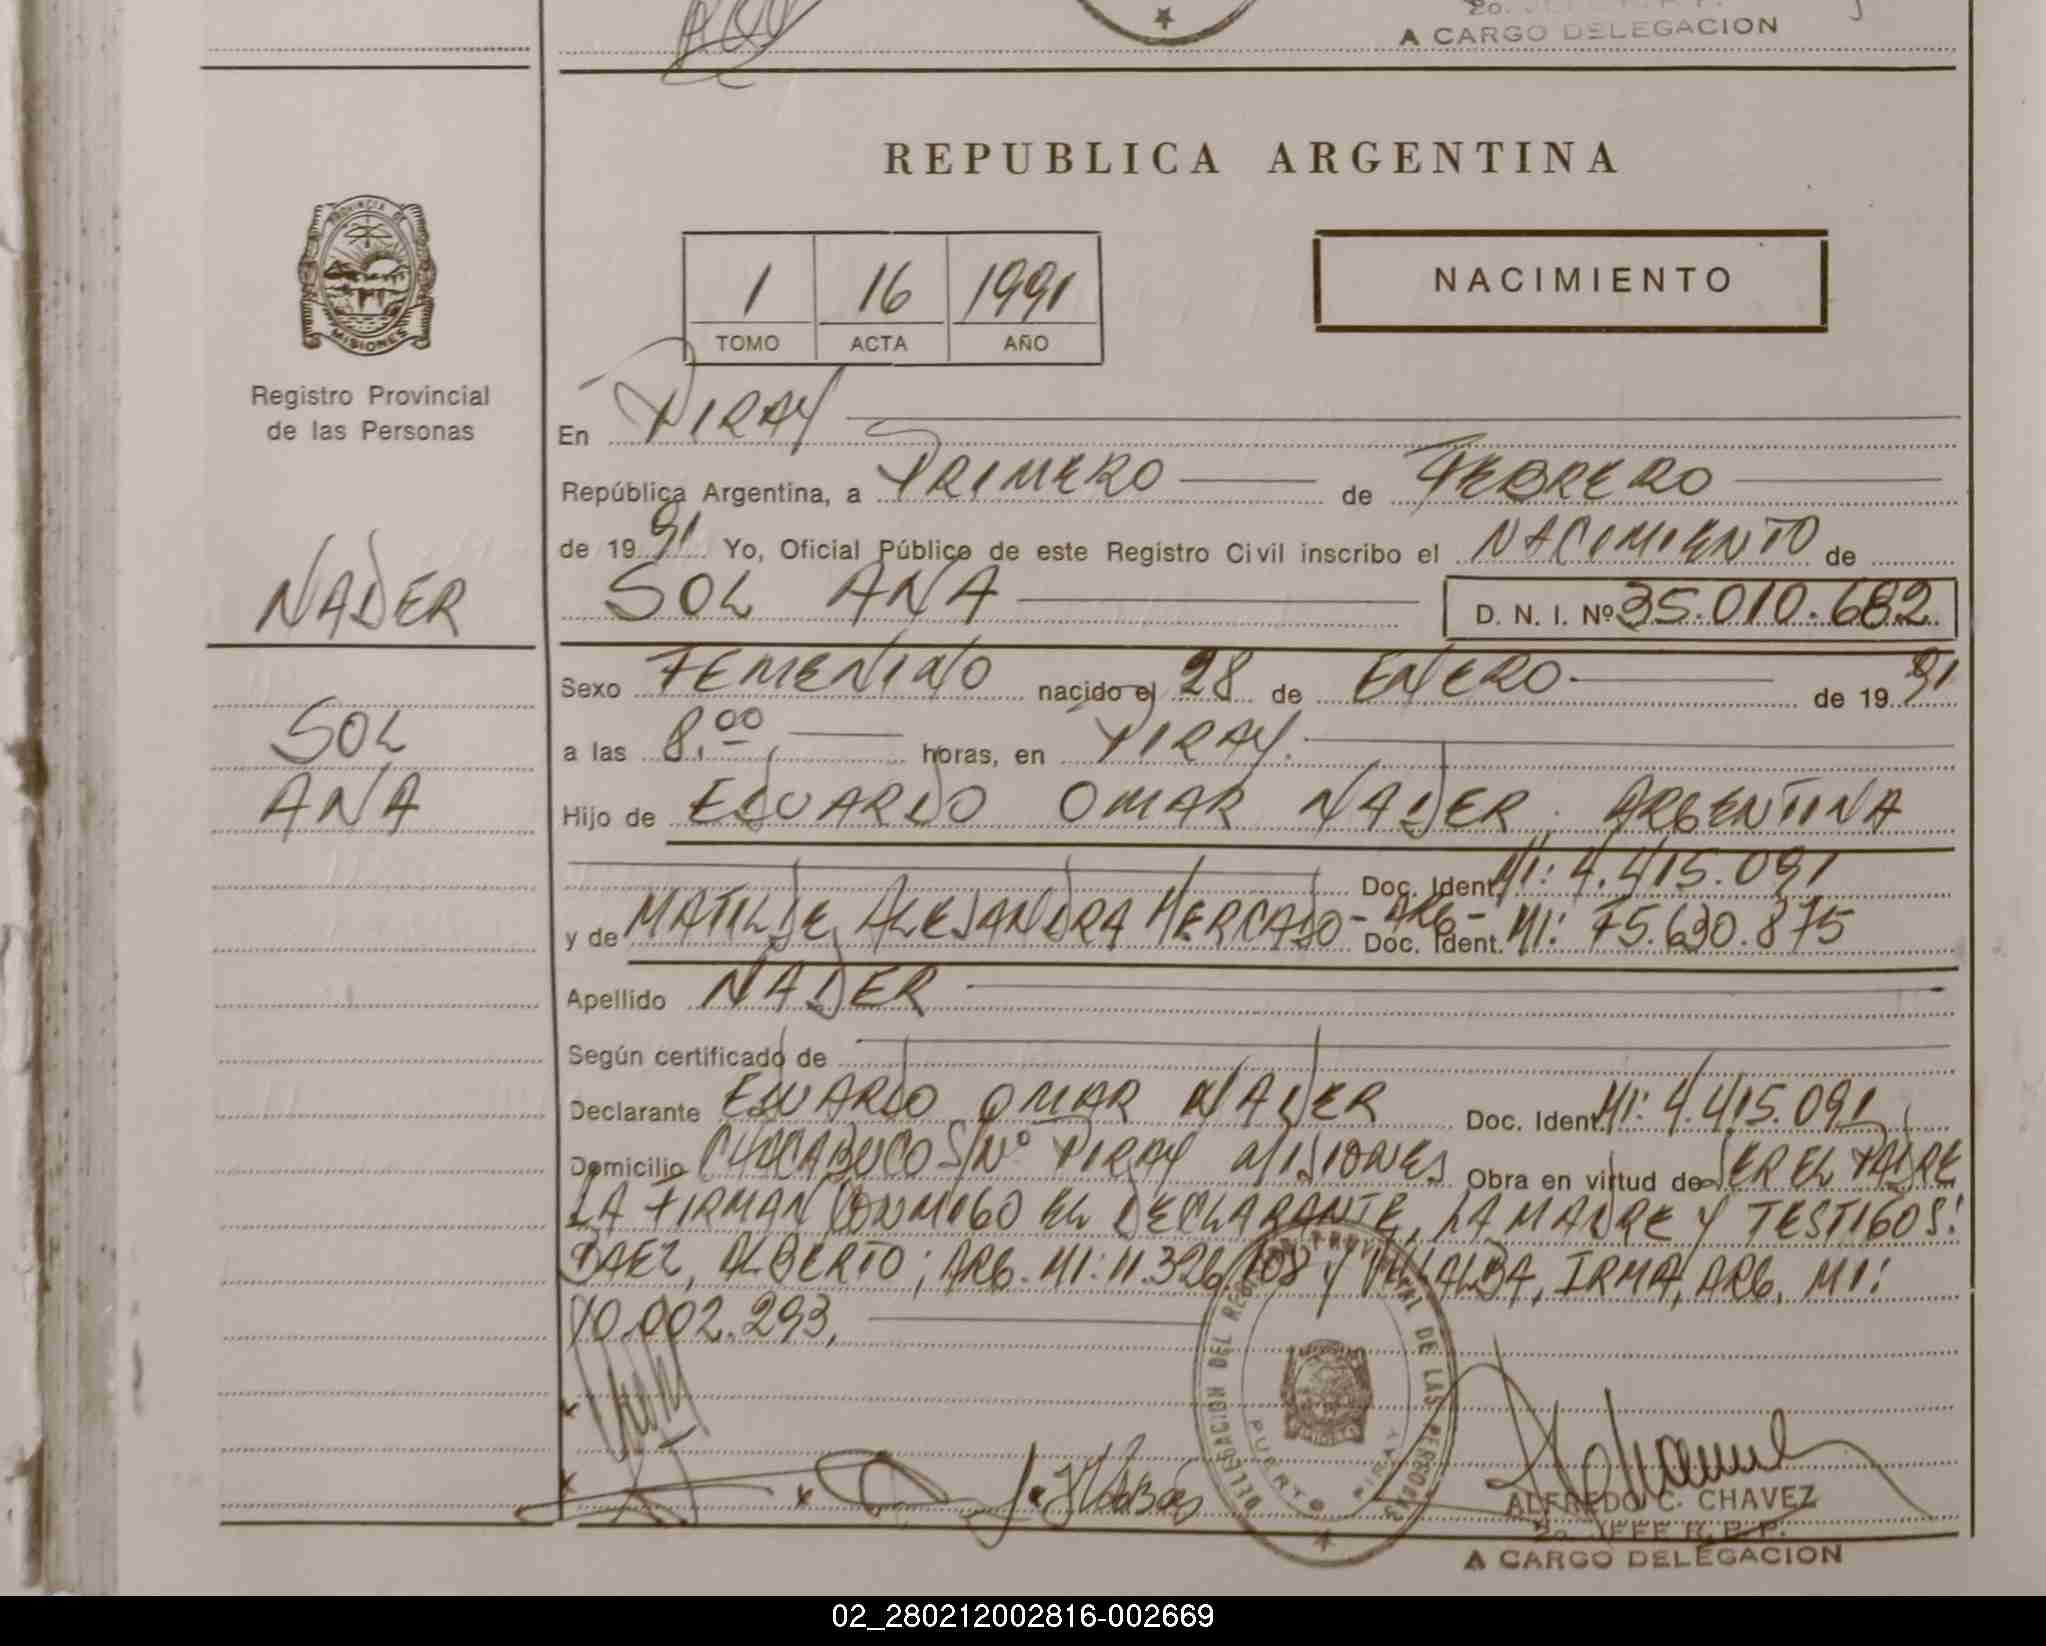 A CARGO DELEGACION
REPUBLICA ARGENTINA
PROVINCIA DE
MISIONES
1 16 1991
TOMO ACTA AÑO
NACIMIENTO
Registro Provincial
de las Personas
En PIRAY
República Argentina, a PRIMERO de FEBRERO
de 1991 Yo, Oficial Público de este Registro Civil inscribo el NACIMIENTO de
SOL ANA D. N. I. Nº 35.010.682
NADER
Sexo FEMENINO nacido el 28 de ENERO de 1991
SOL
a las 8,00 horas, en PIRAY.
ANA
Hijo de EDUARDO OMAR NADER. ARGENTINA
Doc. Ident. MI: 4.415.091
y de MATILDE ALEJANDRA MERCADO - ARG - Doc. Ident. MI: F5.630.875
Apellido NADER
Según certificado de
Declarante EDUARDO OMAR NADER Doc. Ident. MI: 4.415.091
Domicilio CHACABUCO S/Nº PIRAY MISIONES Obra en virtud de SER EL PADRE
LA FIRMAN CONMIGO EL DECLARANTE, LA MADRE Y TESTIGOS:
BAEZ, ALBERTO; ARG. MI: 11.326.108 Y VILLALBA, IRMA, ARG. MI:
10.002.293.
DELEGACION DEL REGISTRO PROVINCIAL DE LAS PERSONAS
PUERTO PIRAY
ALFREDO C. CHAVEZ
2o. JEFE R. P. P.
A CARGO DELEGACION
02_280212002816-002669